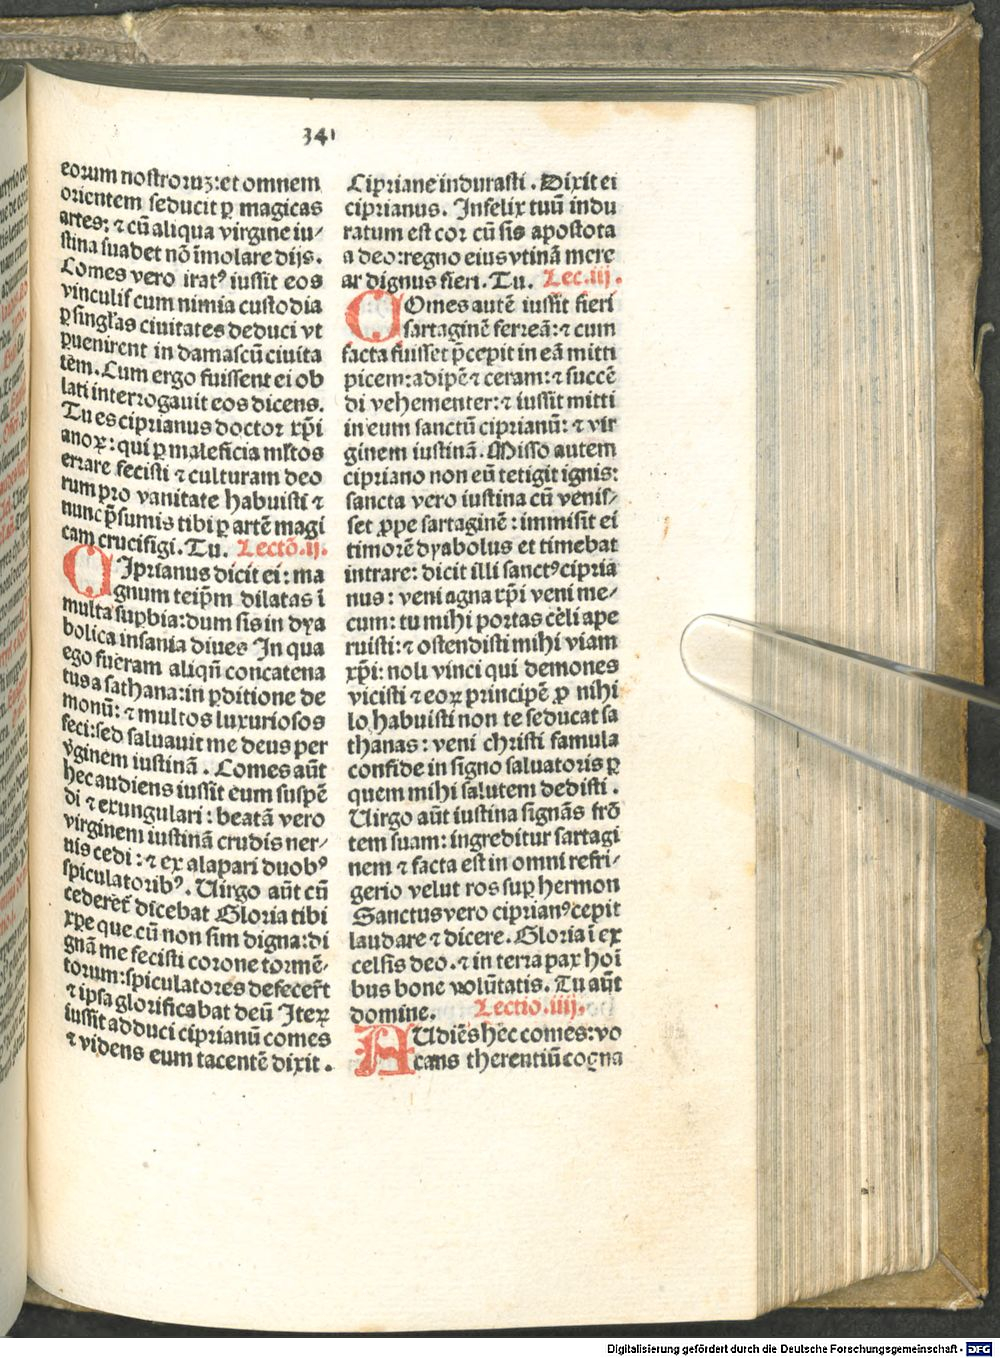 341
eorum nostroruꝫ: et omnem
orientem seducit ꝑ magicas
artes: ⁊ cū aliqua virgine iu⸗
stina suadet nō īmolare dijs.
Comes vero iratꝰ iussit eos
vinculis cum nimia custodia
ꝑ singl̄as ciuitates deduci vt
ꝑuenirent in damascū ciuita
tem. Cum ergo fuissent ei ob
lati interrogauit eos dicens.
Tu es ciprianus doctor xp̄i
anoꝝ: qui ꝑ maleficia ml̄tos
errare fecisti ⁊ culturam deo
rum pro vanitate habuisti ⁊
nunc p̄sumis tibi ꝑ artē magi
cam crucifigi. Tu. Lectō. ij.
CIprianus dicit ei: ma
gnum teip̄m dilatas ī
multa suꝑbia: dum sis in dya
bolica insania diues In qua
ego fueram aliqn̄ concatena
tus a sathana: in ꝑditione de
monū: ⁊ multos luxuriosos
feci: sed saluauit me deus per
v̄ginem iustinā. Comes aūt
hec audiens iussit eum suspē
di ⁊ exungulari: beatā vero
virginem iustinā crudis ner⸗
uis cedi: ⁊ ex alapari duobꝰ
spiculatoribꝰ. Uirgo aūt cū
cederet̄ dicebat Gloria tibi
xp̄e que cū non sim digna: di
gnā me fecisti corone tormē⸗
torum: spiculatores defecer̄t
⁊ ipsa glorificabat deū Iteꝝ
iussit adduci ciprianū comes
⁊ videns eum tacentē dixit.
Cipriane indurasti. Dixit ei
ciprianus. Infelix tuū indu
ratum est cor cū sis apostota
a deo: regno eius vtinā mere
ar dignus fieri. Tu. Lec. iij.
COmes autē iussit fieri
sartaginē ferreā: ⁊ cum
facta fuisset p̄cepit in eā mitti
picem: adipē ⁊ ceram: ⁊ succē
di vehementer: ⁊ iussit mitti
in eum sanctū ciprianū: ⁊ vir
ginem iustinā. Misso autem
cipriano non eū tetigit ignis:
sancta vero iustina cū venis⸗
set ꝓpe sartaginē: immisit ei
timorē dyabolus et timebat
intrare: dicit illi sanctꝰ cipria
nus: veni agna xp̄i veni me⸗
cum: tu mihi portas celi ape
ruisti: ⁊ ostendisti mihi viam
xp̄i: noli vinci qui demones
vicisti ⁊ eoꝝ principē ꝓ nihi
lo habuisti non te seducat sa
thanas: veni christi famula
confide in signo saluatoris ꝑ
quem mihi salutem dedisti.
Uirgo aūt iustina signās frō
tem suam: ingreditur sartagi
nem ⁊ facta est in omni refri⸗
gerio velut ros suꝑ hermon
Sanctus vero cipriānꝰ cepit
laudare ⁊ dicere. Gloria ī ex
celsis deo. ⁊ in terra pax hoī
bus bone volūtatis. Tu aūt
domine. Lectio. iiij.
AUdiēs hec comes: vo
cans therentiū cogna
Digitalisierung gefördert durch die Deutsche Forschungsgemeinschaft - DFG